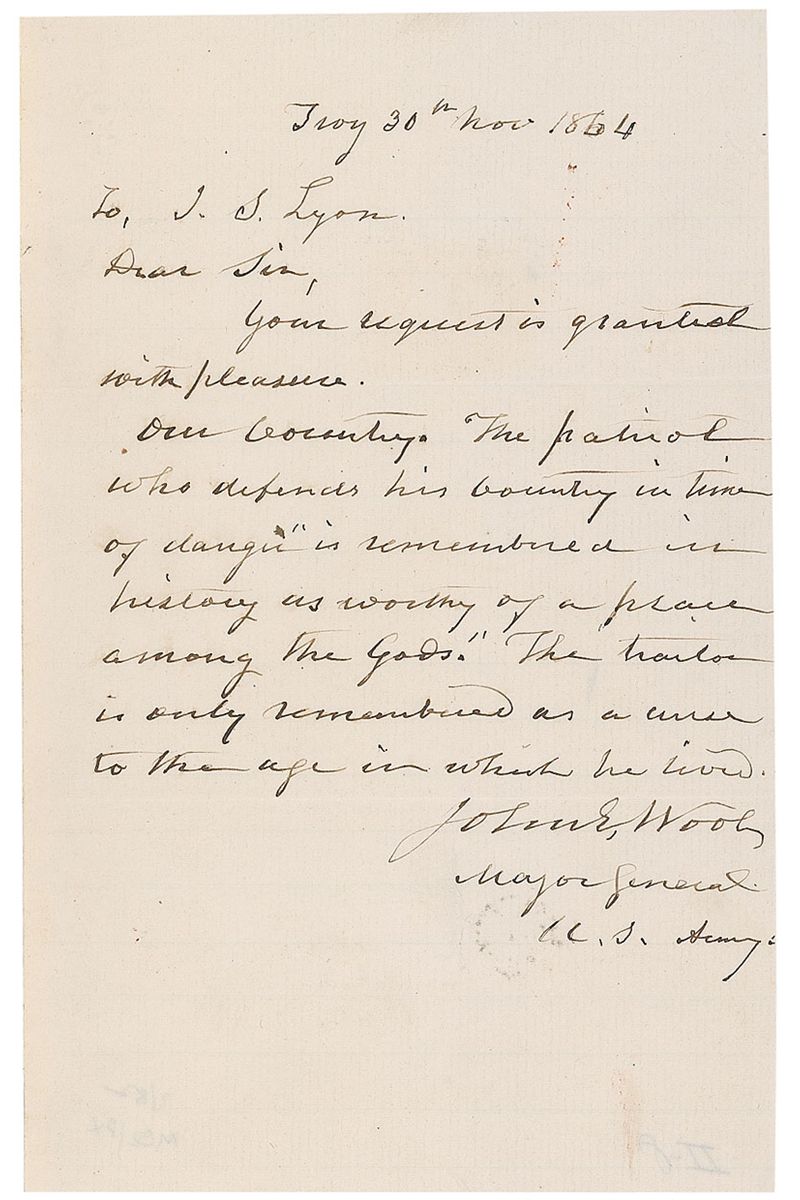 Troy 30th Nov 1864
To, I. S. Lyon.
Dear Sir,
Your request is granted
with pleasure.
Our Country. The patriot
who defends his Country in time
of danger "is remembered in
history as worthy of a place
among the Gods." The traitor
is only remembered as a curse
to the age in which he lived.
John E. Wool,
Major General
U. S. Army.